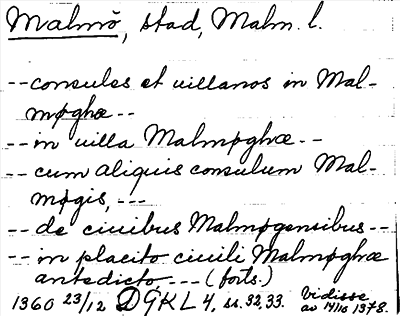 Malmö, stad, Malm. l.
-- consules et uillanos in Mal-
møghæ --
-- in uilla Malmøghæ --
-- cum aliquis consulum Mal-
møgis, ---
-- de ciuibus Malmøgensibus --
-- in placito ciuili Malmøghæ
antedicto --- (forts.)
1360 23/12 DGKL 4, ss. 32, 33. Vidisse
av 14/10 1378.